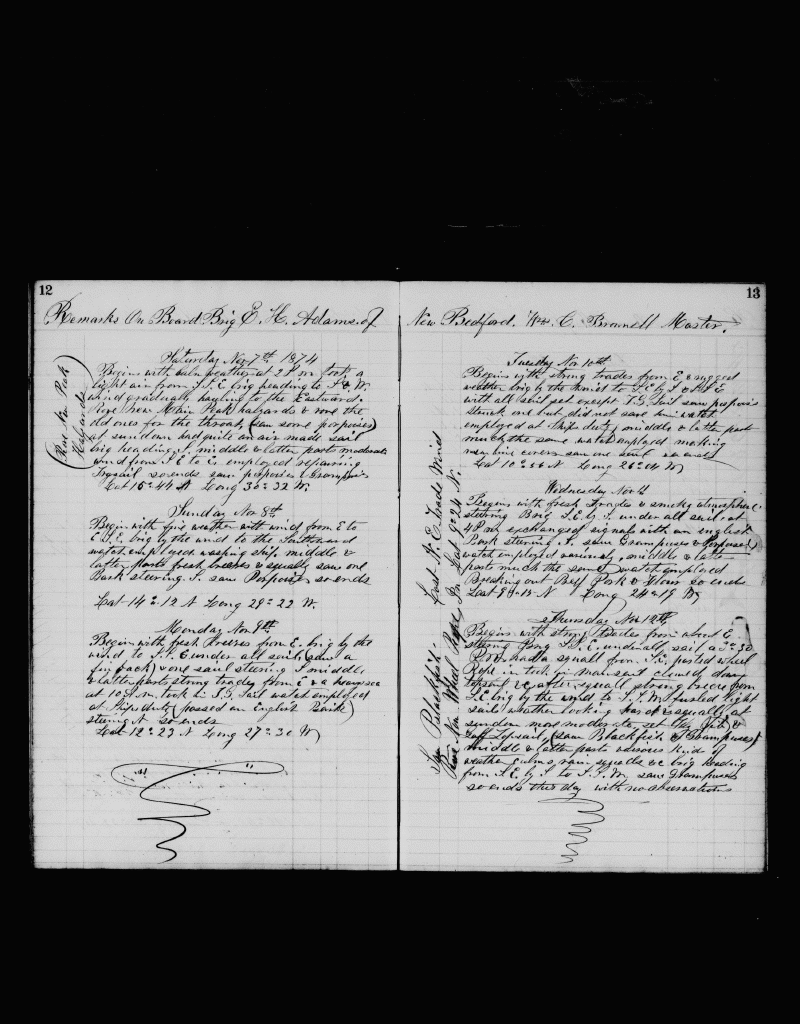 12
Remarks On Board Brig E. H. Adams of
(Rove New Peak
Halyards)
Saturday Nov 7th 1874
Begins with calm weather at 2 P m took a
light air from S.S.E brig heading to S & W.
wind gradually hauling to the Eastward.
Rove new Main Peak halyards & rove the
old ones for the throat (saw some porpoises)
at sundown had quite an air made sail
brig heading S. middle & latter parts moderate
wind from E to employed repairing
Trysail so ends saw porpoises & Grampuses
Lat 15=44 N Long 30=32 W.
Sunday Nov 8th
Begins with fine weather with wind from E to
E.S.E. brig by the wind to the Southward
watch employed washing ship. middle &
latter parts fresh breezes & squally saw one
Bark steering S. saw Porpoises so ends
Lat 14=12 N Long 29=22 W.
Monday Nov 9th
Begins with fresh breezes from E. brig by the
wind to S.S.E under all sail (saw a
finback) & one sail steering S middle
& latter parts strong trades from E & a heavy sea
at 10 A.m. took in sail watch employed
at Ships duty (passed an English Bark)
steering N so ends
Lat 12=23 N Long 27=30 W
13
New Bedford. Wm. C. Brownell Master.
Tuesday Nov 10th
Begins with strong trades from E & rugged
weather brig by the wind to S.E by S & S.S.E
with all sail set except saw porpoises
struck one but did not save him watch
employed at ships duty middle & latter parts
much the same watch employed making
new covers saw one sail so ends
Lat 10=56 N Long 26=04 W
Saw Blackfish. Lost N. E. Trade Wind
Rove New Wheel Rope In Lat 9=24 N.
Wednesday Nov 11
Begins with fresh Trades & smoky atmosphere
steering Brig S.E. by S. under all sail, at
4 P m exchanged signals with an english
Bark steering S. saw Grampuses & Porpoises
watch employed variously middle & latter
parts much the same watch employed
Breaking out Beef Pork & Flour so ends
Lat 9=13 N Long 24=19 W
Thursday Nov 12th
Begins with strong Trades from about E.
steering Brig S.S.E. under all sail at 3=30
P.m. had a squall from S.E. parted wheel
rope. in took in mainsail clewed down
topsail & after squall strong breeze from
S.E brig by the wind to S.S.W furled light
sails weather looking bad & squally at
sundown more moderate set the Jib &
Gaff Topsail, (saw Blackfish & Grampuses)
middle & latter parts various kind of
weather calms rain squalls &c brig heading
from S.E. by S. to S.S.W. saw Grampuses
so ends this day with no observations